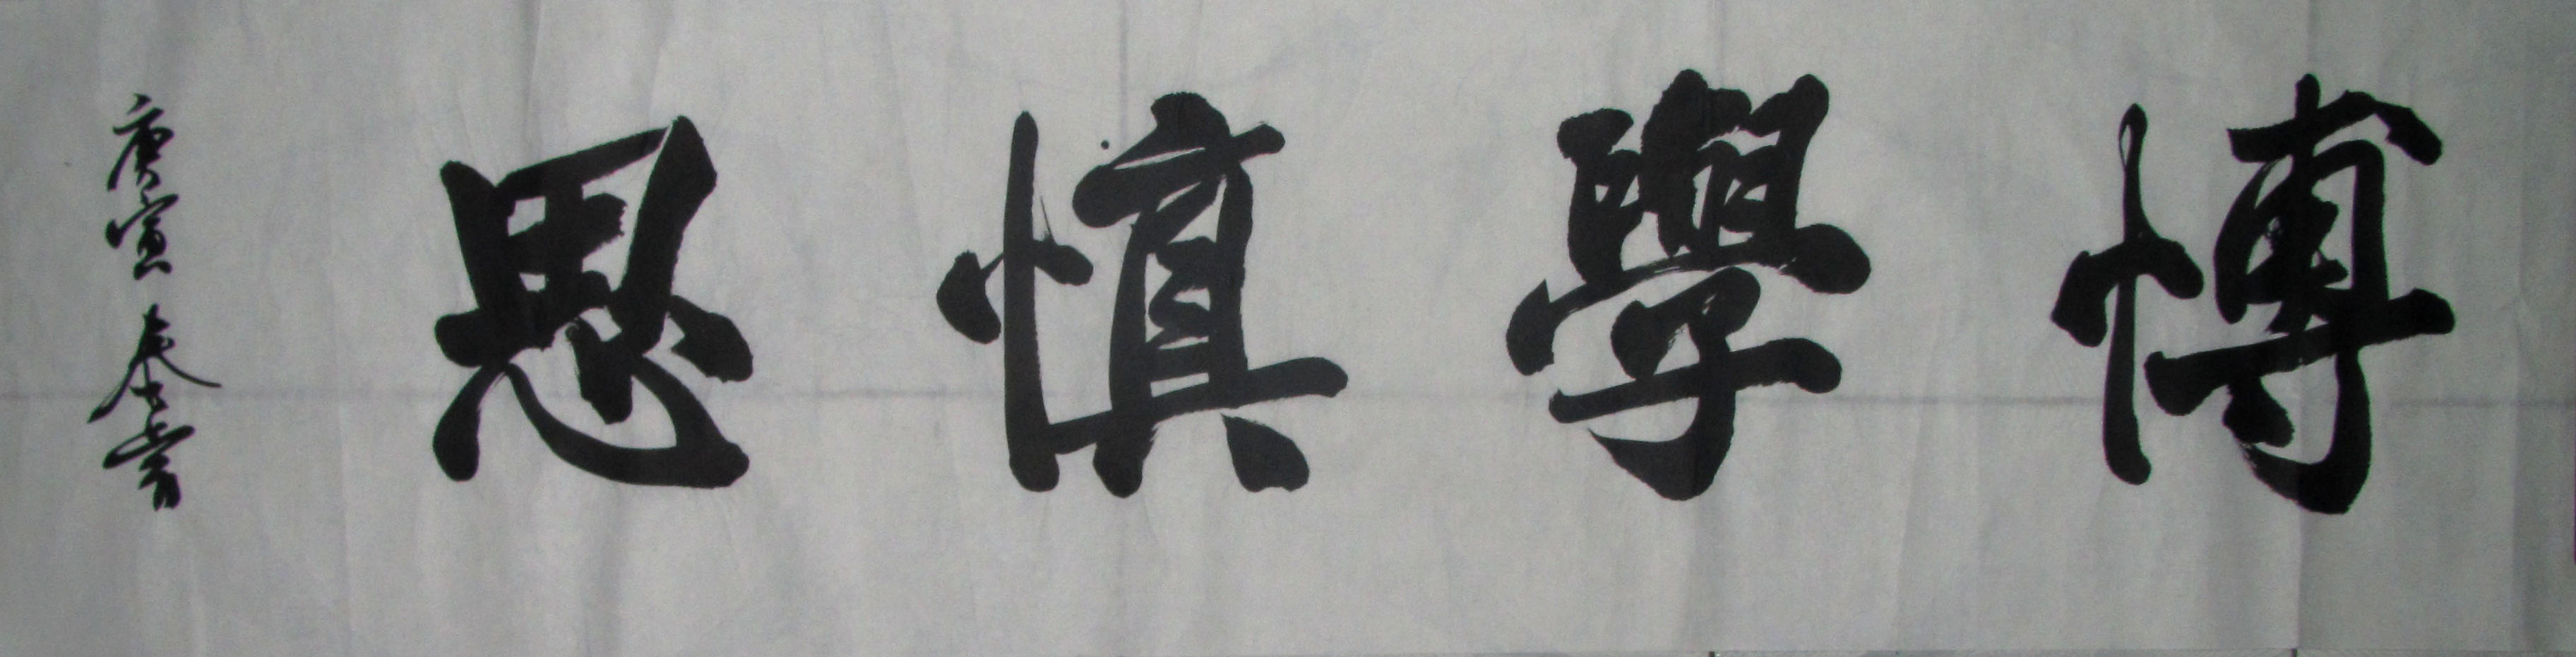 博學慎思
庚寅春